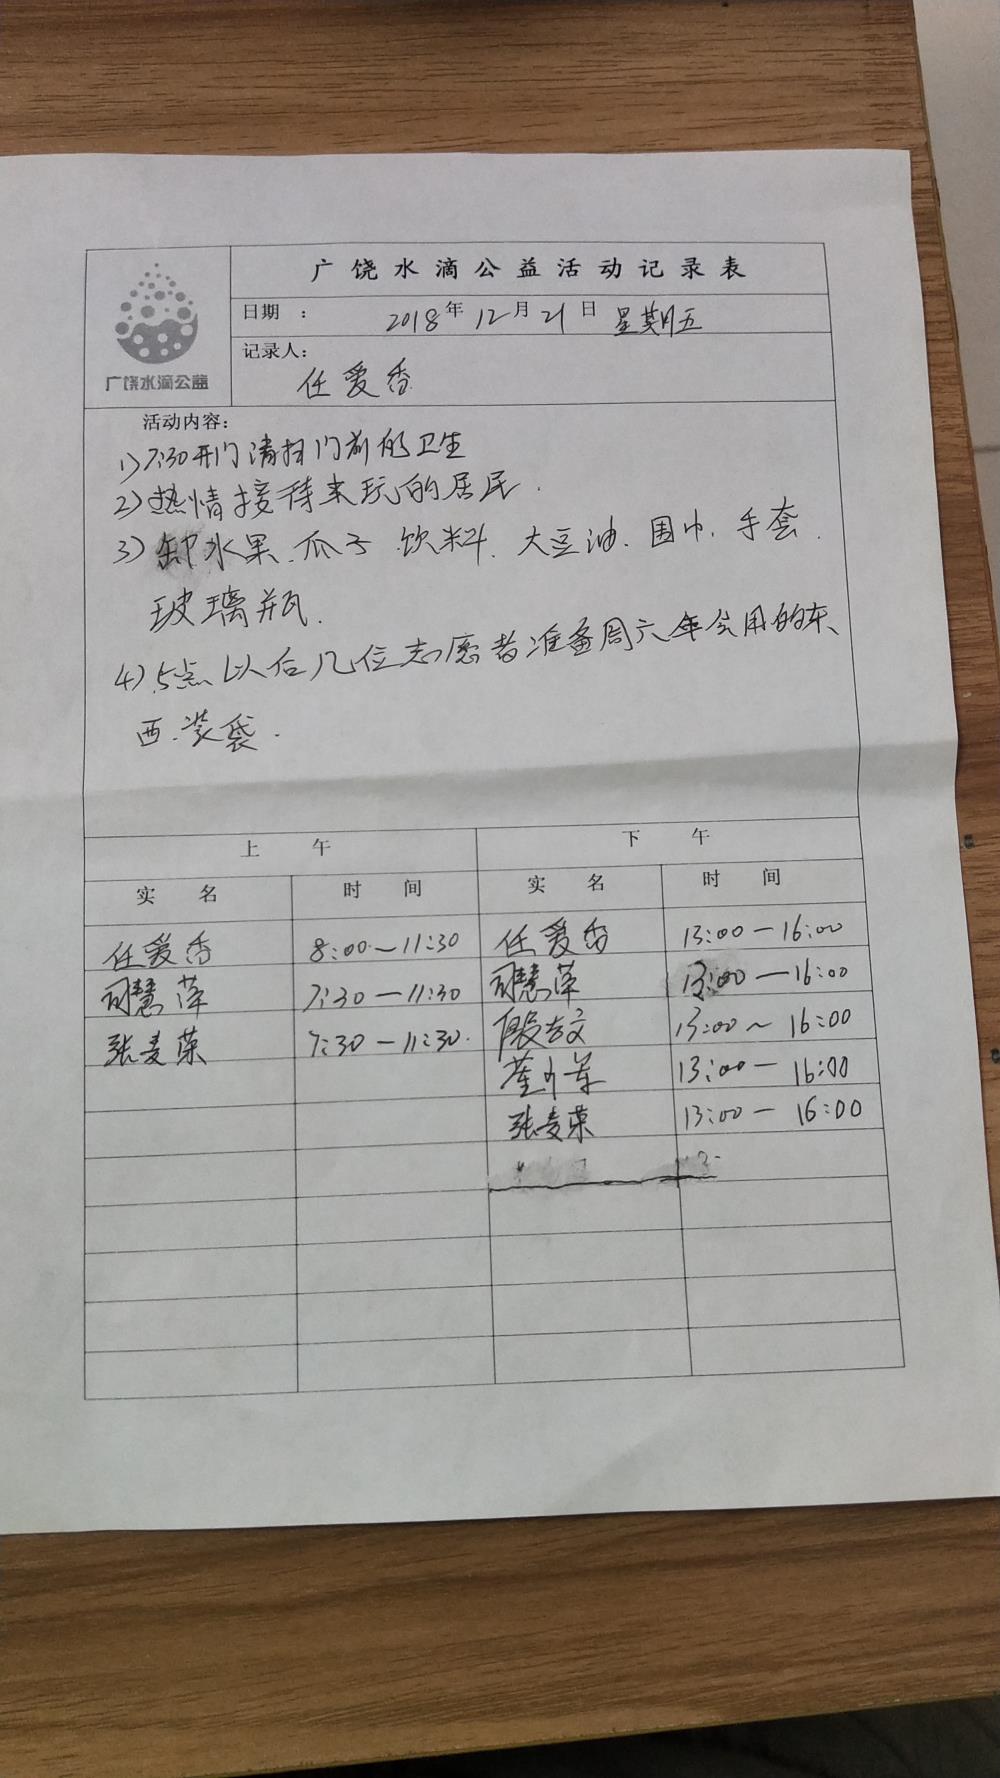 广饶水滴公益活动记录表
广饶水滴公益
日期 : 2018年12月21日 星期五
记录人:
任爱香
活动内容:
1)7:30开门清扫门前的卫生
2)热情接待来玩的居民.
3)卸水果.瓜子.饮料.大豆油.围巾.手套.
玻璃瓶.
4)5点以后几位志愿者准备周六年会用的东
西.装袋.
上 午 下 午
实 名 时 间 实 名 时 间
任爱香 8:00~11:30 任爱香 13:00—16:00
司慧萍 7:30—11:30 司慧萍 13:00—16:00
张麦荣 7:30—11:30. 13:00~16:00
13:00—16:00
张麦荣 13:00—16:00